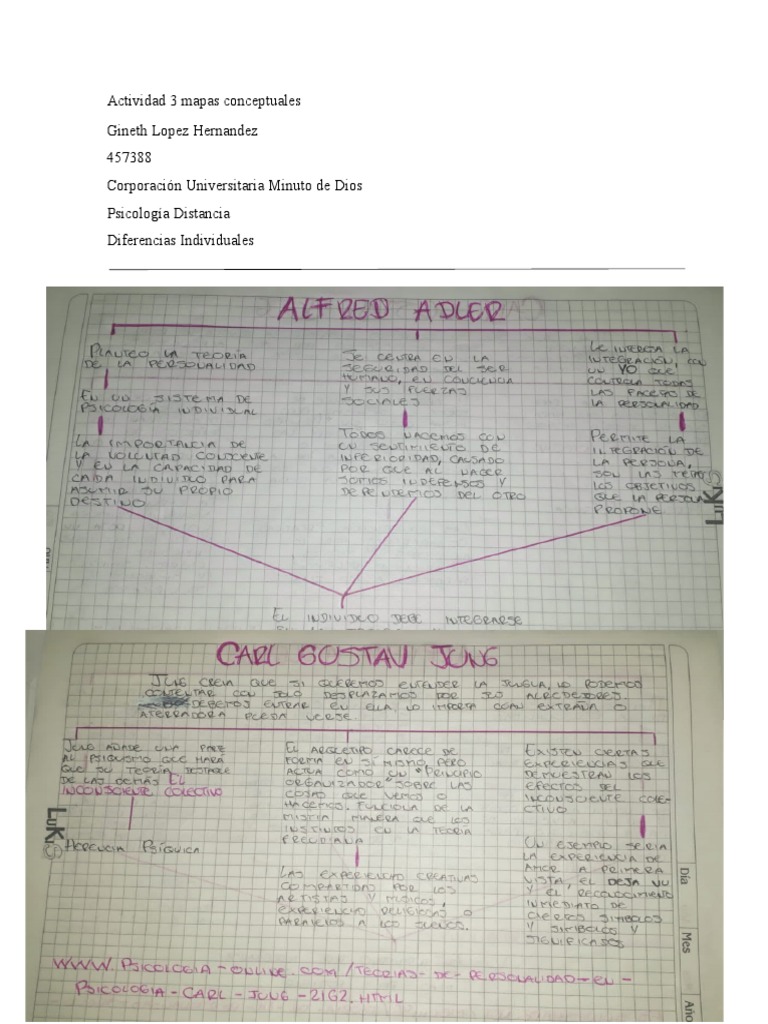 Actividad 3 mapas conceptuales
Gineth Lopez Hernandez
457388
Corporación Universitaria Minuto de Dios
Psicología Distancia
Diferencias Individuales
ALFRED ADLER
PLANTEO LA TEORÍA
DE LA PERSONALIDAD
EN UN SISTEMA DE
PSICOLOGÍA INDIVIDUAL
LA IMPORTANCIA DE
LA VOLUNTAD CONCIENTE
Y EN LA CAPACIDAD DE
CADA INDIVIDUO PARA
ASUMIR SU PROPIO
DESTINO
SE CENTRA EN LA
SEGURIDAD DEL SER
HUMANO, EN CONCIENCIA
Y SUS FUERZAS
SOCIALES
TODOS NACEMOS CON
UN SENTIMIENTO DE
INFERIORIDAD, CAUSADO
POR QUE AL NACER
SOMOS INDEFENSOS Y
DEPENDEMOS DEL OTRO
LE INTERESA LA
INTEGRACIÓN, CON
UN YO QUE
CONTROLA TODAS
LAS FACETAS DE
LA PERSONALIDAD
PERMITE LA
INTEGRACIÓN DE
LA PERSONA,
SON LAS
LOS OBJETIVOS
QUE LA PERSONA
PROPONE
LuKis
EL INDIVIDUO DEBE INTEGRARSE
CARL GUSTAV JUNG
JUNG CREIA QUE SI QUEREMOS ENTENDER LA JUNGLA, NO PODEMOS
CONTENTAR CON SOLO DESPLAZARNOS POR SUS ALREDEDORES.
DEBEMOS ENTRAR EN ELLA NO IMPORTA CUAN EXTRAÑA O
ATERRADORA PUEDA VERSE.
JUNG AÑADE UNA PARTE
AL PSIQUISMO QUE HARÁ
QUE SU TEORÍA DESTAQUE
DE LAS DEMÁS EL
INCONSCIENTE COLECTIVO
HERENCIA PSÍQUICA
EL ARQUETIPO CARECE DE
FORMA EN SI MISMO, PERO
ACTUA COMO UN "PRINCIPIO
ORGANIZADOR" SOBRE LAS
COSAS QUE VEMOS O
HACEMOS. FUNCIONA DE LA
MISMA MANERA QUE LOS
INSTINTOS EN LA TEORÍA
FREUDIANA
LAS EXPERIENCIAS CREATIVAS
COMPARTIDAS POR LOS
ARTISTAS Y MÚSICOS,
EXPERIENCIAS RELIGIOSAS O
PARALELOS A LOS SUEÑOS.
EXISTEN CIERTAS
EXPERIENCIAS QUE
DEMUESTRAN LOS
EFECTOS DEL
INCONSCIENTE COLE-
CTIVO
UN EJEMPLO SERIA
LA EXPERIENCIA DE
AMOR A PRIMERA
VISTA, EL DEJA VU
Y EL RECONOCIMIENTO
INMEDIATO DE
CIERTOS SIMBOLOS
Y SIMBOLOS Y
SIGNIFICADOS
LuKis
Día
Mes
Año
WWW.PSICOLOGIA-ONLINE.COM/TEORIAS-DE-PERSONALIDAD-EN-
PSICOLOGIA-CARL-JUNG-2162.HTML